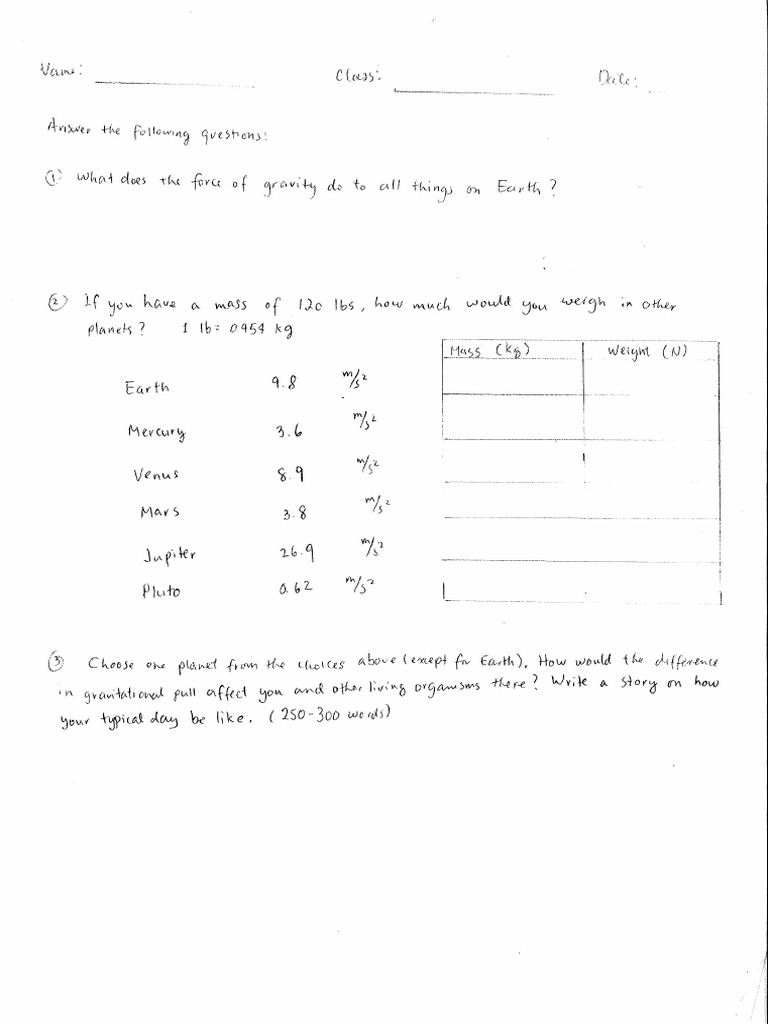 Name: ____________ Class: ____________ Date: __
Answer the following questions:
① What does the force of gravity do to all things on Earth?
② If you have a mass of 120 lbs, how much would you weigh in other
planets? 1 lb = 0454 kg
Mass (kg) Weight (N)
Earth 9.8 m/s²
Mercury 3.6 m/s²
Venus 8.9 m/s²
Mars 3.8 m/s²
Jupiter 26.9 m/s²
Pluto 0.62 m/s²
③ Choose one planet from the choices above (except for Earth). How would the difference
in gravitational pull affect you and other living organisms there? Write a story on how
your typical day be like. (250-300 words)